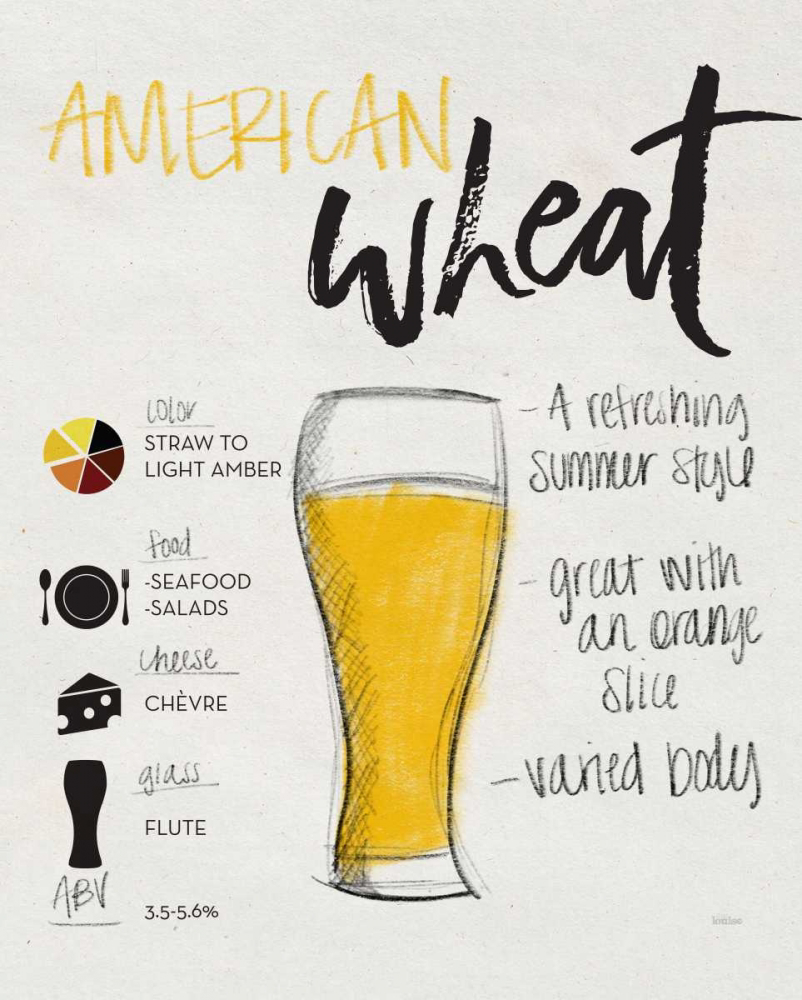 AMERICAN
wheat
color
STRAW TO
LIGHT AMBER
food
-SEAFOOD
-SALADS
cheese
CHÈVRE
glass
FLUTE
ABV
3.5-5.6%
- A refreshing
summer style
- great with
an orange
slice
- varied body